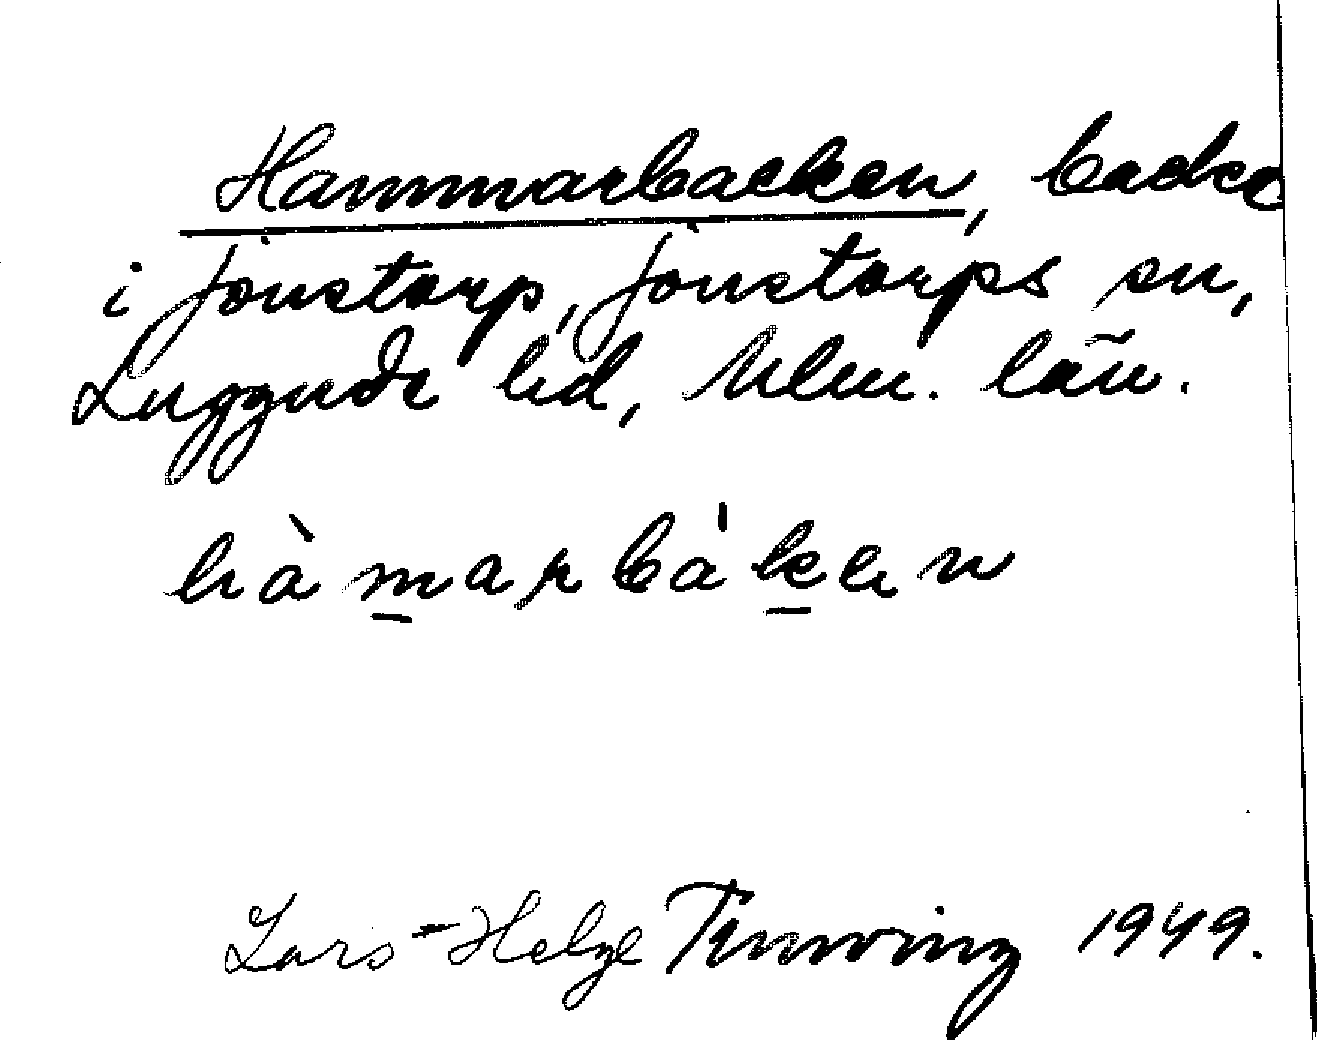 Hammarbacken, backe
i Jonstorp, Jonstorps sn,
Luggude hd, Mlm. län.
hàmarbáken
Lars-Helge 1949.